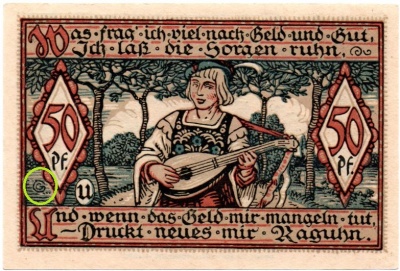 Was frag ich viel nach Geld und Gut,
Ich laß die Sorgen ruhn.
50 50
Pf. Pf.
G U
Und wenn das Geld mir mangeln tut,
Druckt neues mir Raguhn.